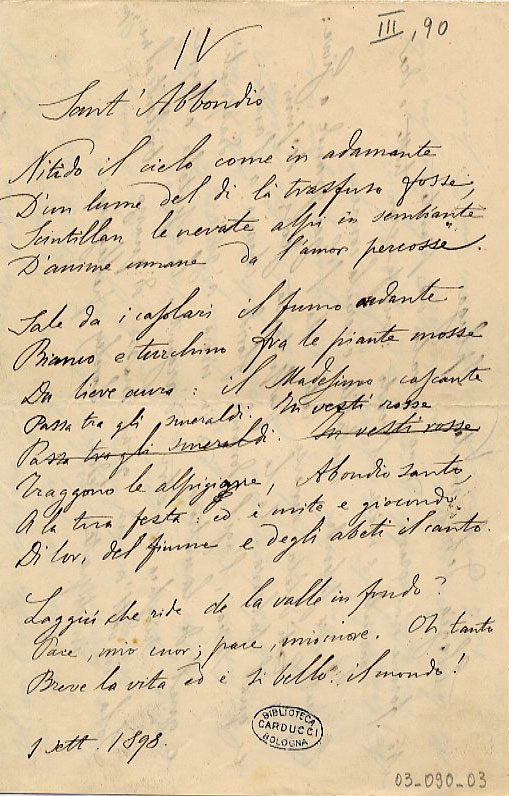 III, 90
IV
Sant' Abbondio
Nitido il cielo come in adamante
D'un lume del di là trasfuso fosse,
Scintillan le nevate alpi in sembiante
D'anime umane da l'amor percosse.
Sale da i casolari il fumo ondante
Bianco e turchino fra le piante mosse
Da lieve aura: il Madesimo cascante
Passa tra gli smeraldi. In vesti rosse
Passa tra gli smeraldi. In vesti rosse
Traggono le alpigiane, Abondio santo,
A la tua festa: ed è mite e giocondo
Di lor, del fiume e degli abeti il canto.
Laggiù che ride de la valle in fondo?
Pace, mio cuor; pace, mio cuore. Oh tanto
Breve la vita ed è sì bello il mondo!
1 sett. 1898.
BIBLIOTECA
CARDUCCI
BOLOGNA
03-090-03